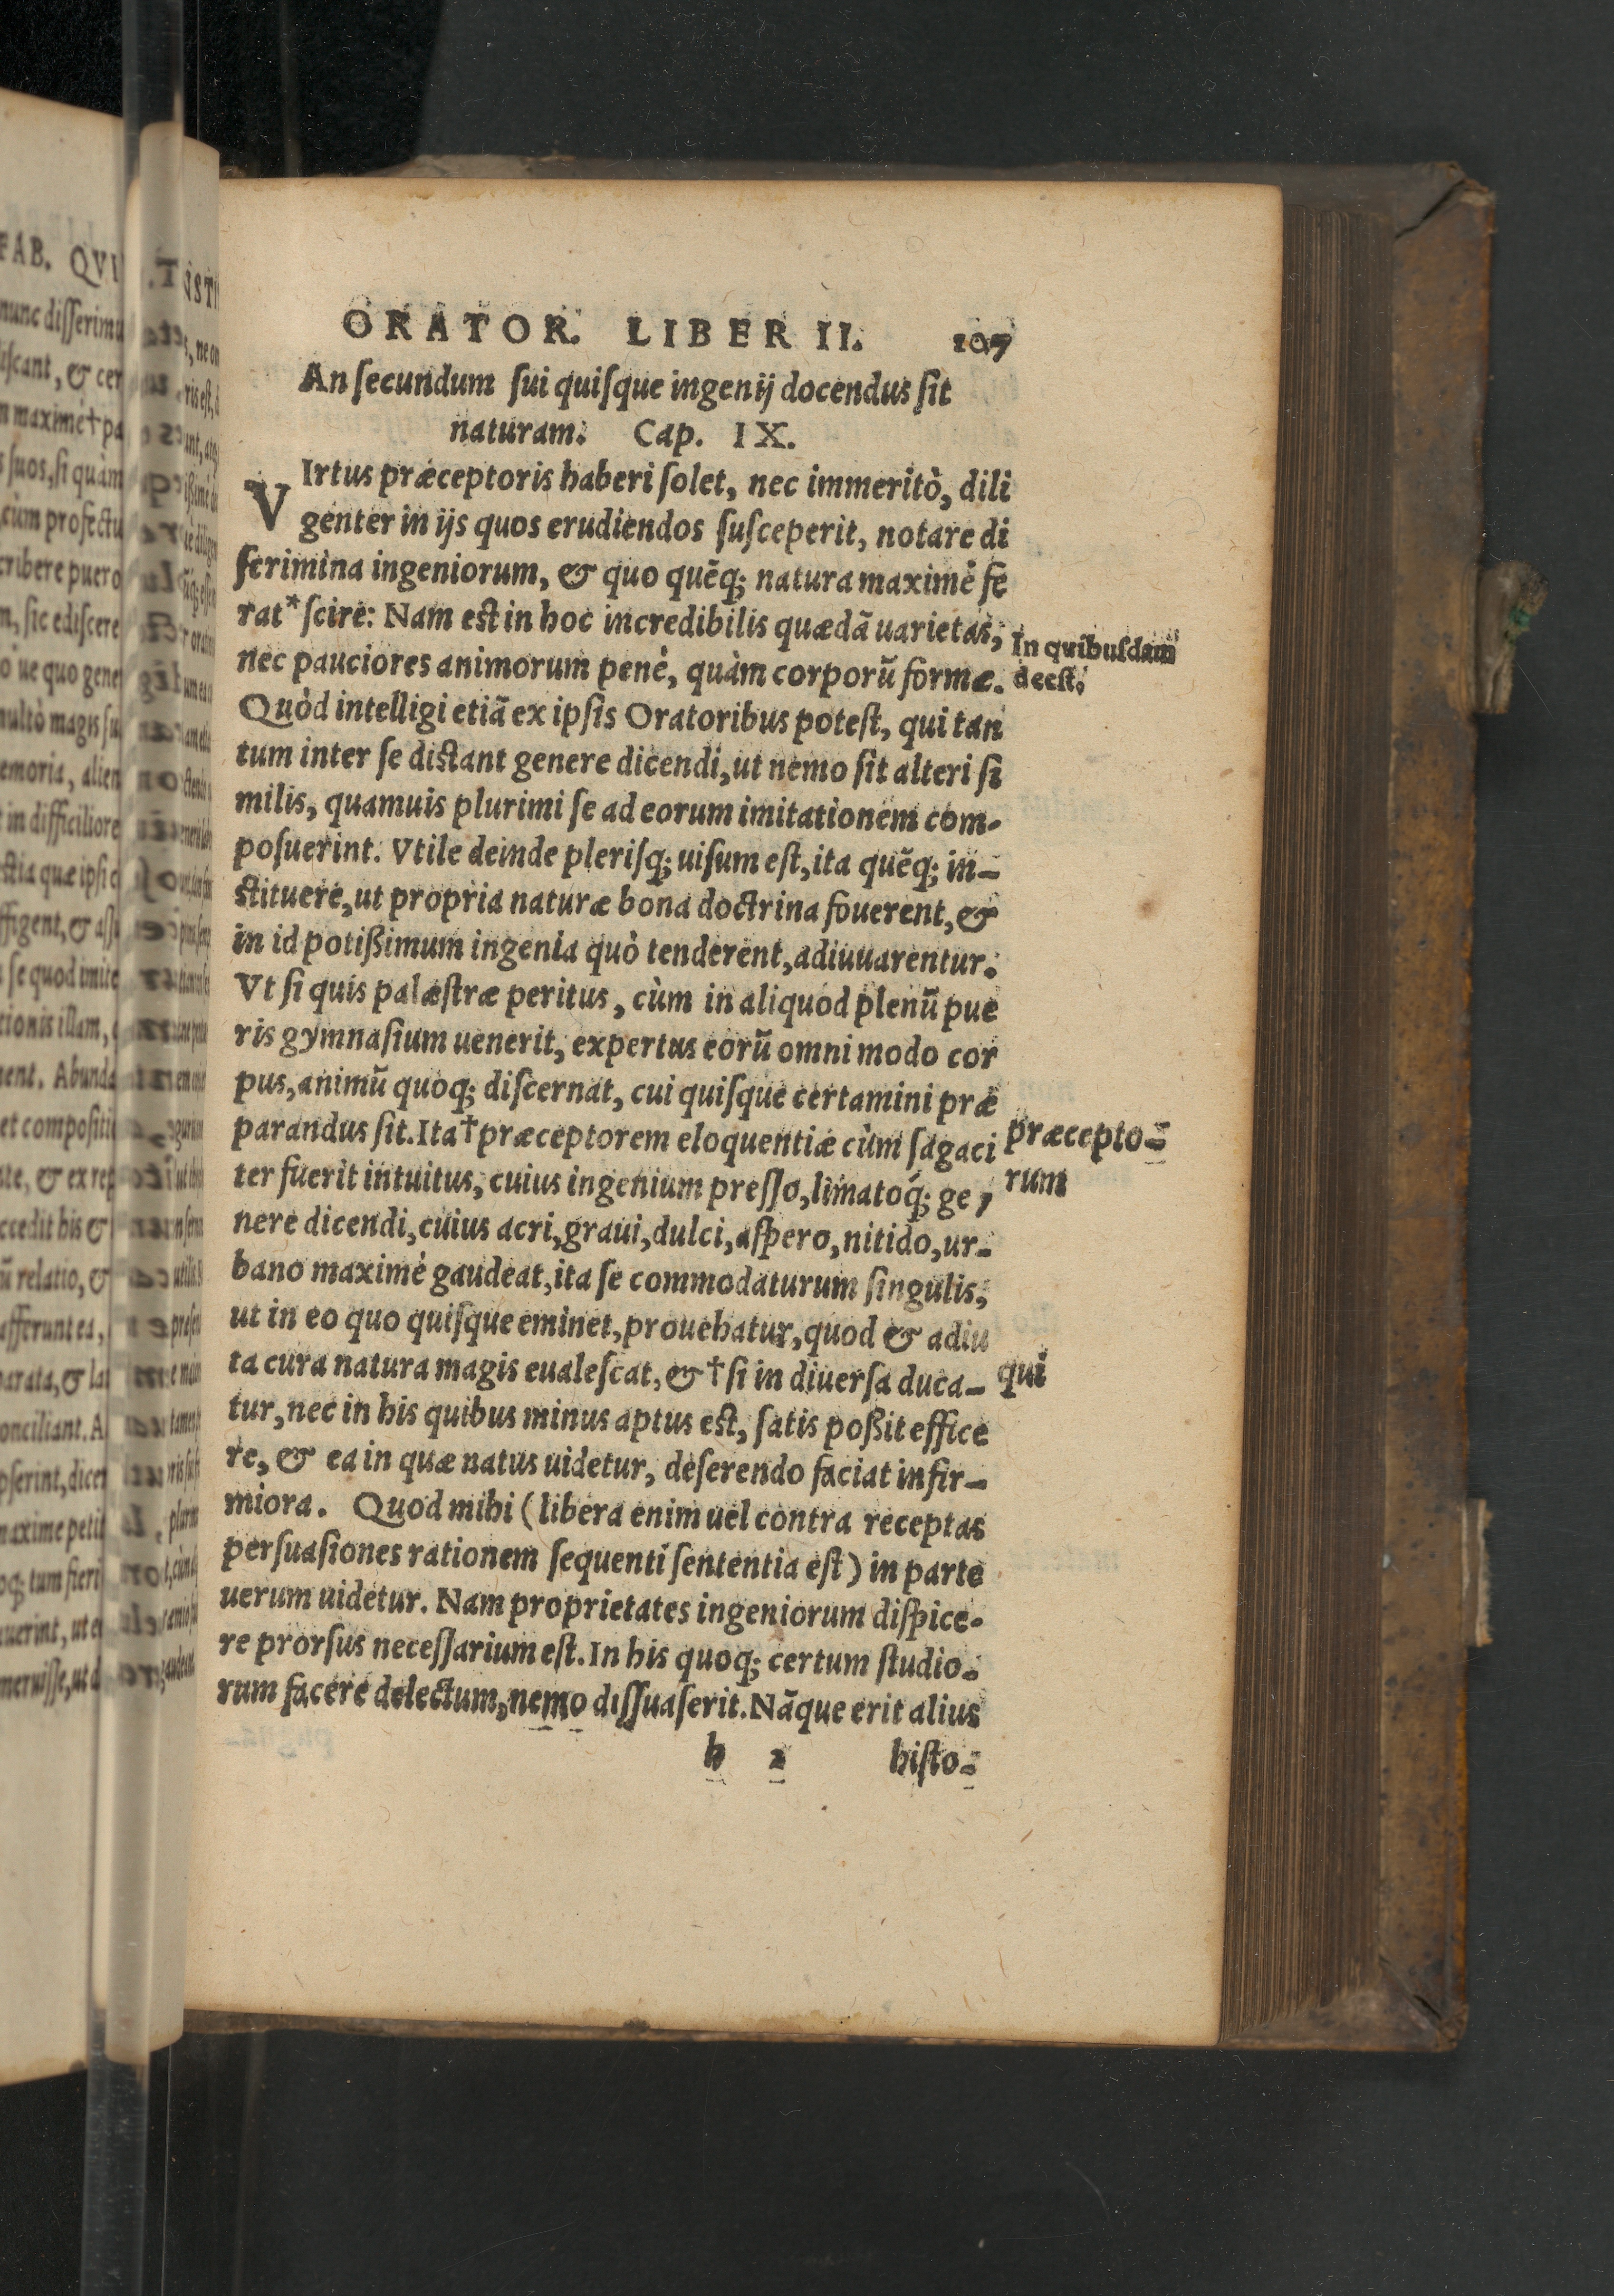 ORATOR. LIBER II. 107
An ſecundum ſui quiſque ingenij docendus ſit
naturam. Cap. IX.
VIrtus præceptoris haberi ſolet, nec immeritò, dili
genter in ijs quos erudiendos ſuſceperit, notare di
ſcrimina ingeniorum, & quo quẽq; natura maximè fe
rat* ſcire: Nam est in hoc incredibilis quædã uarietas,
In quibuſdam
deeſt.
nec pauciores animorum penè, quàm corporũ formæ.
Quòd intelligi etiã ex ipſis Oratoribus poteſt, qui tan
tum inter ſe distant genere dicendi, ut nemo ſit alteri ſi
milis, quamuis plurimi ſe ad eorum imitationem com-
poſuerint. Vtile deinde pleriſq; uiſum eſt, ita quẽq; in-
stituere, ut propria naturæ bona doctrina fouerent, &
in id potißimum ingenia quò tenderent, adiuuarentur.
Vt ſi quis palæſtræ peritus, cùm in aliquod plenũ pue
ris gymnaſium uenerit, expertus eorũ omni modo cor
pus, animũ quoq; diſcernat, cui quiſque certamini præ
parandus ſit. Ita† præceptorem eloquentiæ cùm ſagaci
præcepto-
rum
ter fuerit intuitus, cuius ingenium preſſo, limatoq́; ge,
nere dicendi, cuius acri, graui, dulci, aſpero, nitido, ur-
bano maximè gaudeat, ita ſe commodaturum ſingulis,
ut in eo quo quiſque eminet, prouehatur, quod & adiu
ta cura natura magis eualeſcat, &† ſi in diuerſa duca-
qui
tur, nec in his quibus minus aptus est, ſatis poßit effice
re, & ea in quæ natus uidetur, deſerendo faciat infir-
miora. Quod mihi (libera enim uel contra receptas
perſuaſiones rationem ſequenti ſententia eſt) in parte
uerum uidetur. Nam proprietates ingeniorum diſpice-
re prorſus neceſſarium eſt. In his quoq; certum ſtudio-
rum facere delectum, nemo diſſuaſerit. Nãque erit alius
h 2 hiſto-